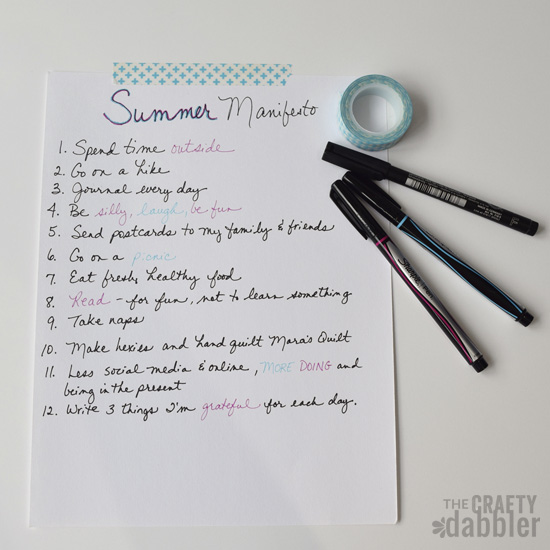 Summer Manifesto
1. Spend time outside
2. Go on a hike
3. Journal every day
4. Be silly, laugh, be fun
5. Send postcards to my family & friends
6. Go on a picnic
7. Eat fresh, healthy food
8. Read - for fun, not to learn something
9. Take naps
10. Make hexies and hand quilt Mara's Quilt
11. Less social media & online, MORE DOING and
being in the present
12. Write 3 things I'm grateful for each day.
Sharpie
THE CRAFTY
dabbler